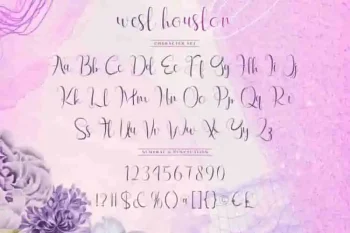 west houston
CHARACTER SET
Aa Bb Cc Dd Ee Ff Gg Hh Ii Jj
Kk Ll Mm Nn Oo Pp Qq Rr
Ss Tt Uu Vv Ww Xx Yy Zz
NUMERAL & PUNCTUATION
1234567890